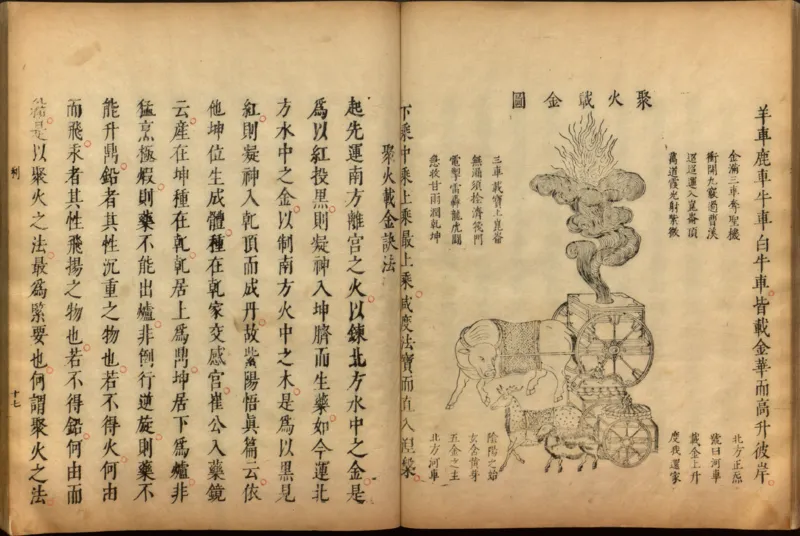 羊車鹿車牛車白牛車皆載金華而高升彼岸
聚火載金圖
金滿三車奪聖機
衝開九竅過曹溪
迢迢運入崑崙頂
萬道霞光射紫微
三車載寶上崑崙
無漏須拴濟筏門
電掣雷轟龍虎鬬
急收甘雨潤乾坤
北方正炁
號曰河車
載金上升
度我還家
陰陽之始
玄含黃芽
五金之主
北方河車
下乘中乘上乘最上乘咸度法寶而直入涅槃
聚火載金訣法
起先運南方離宮之火以鍊北方水中之金是
爲以紅投黑則凝神入坤臍而生藥如今運北
方水中之金以制南方火中之木是爲以黑見
紅則凝神入乾頂而成丹故紫陽悟眞篇云依
他坤位生成體種在乾家交感宮崔公入藥鏡
云產在坤種在乾乾居上爲鼎坤居下爲爐非
猛烹極煅則藥不能出爐非倒行逆旋則藥不
能升鼎鉛者其性沉重之物也若不得火何由
而飛汞者其性飛揚之物也若不得鉛何由而
是以聚火之法最爲緊要也何謂聚火之法
利
十七